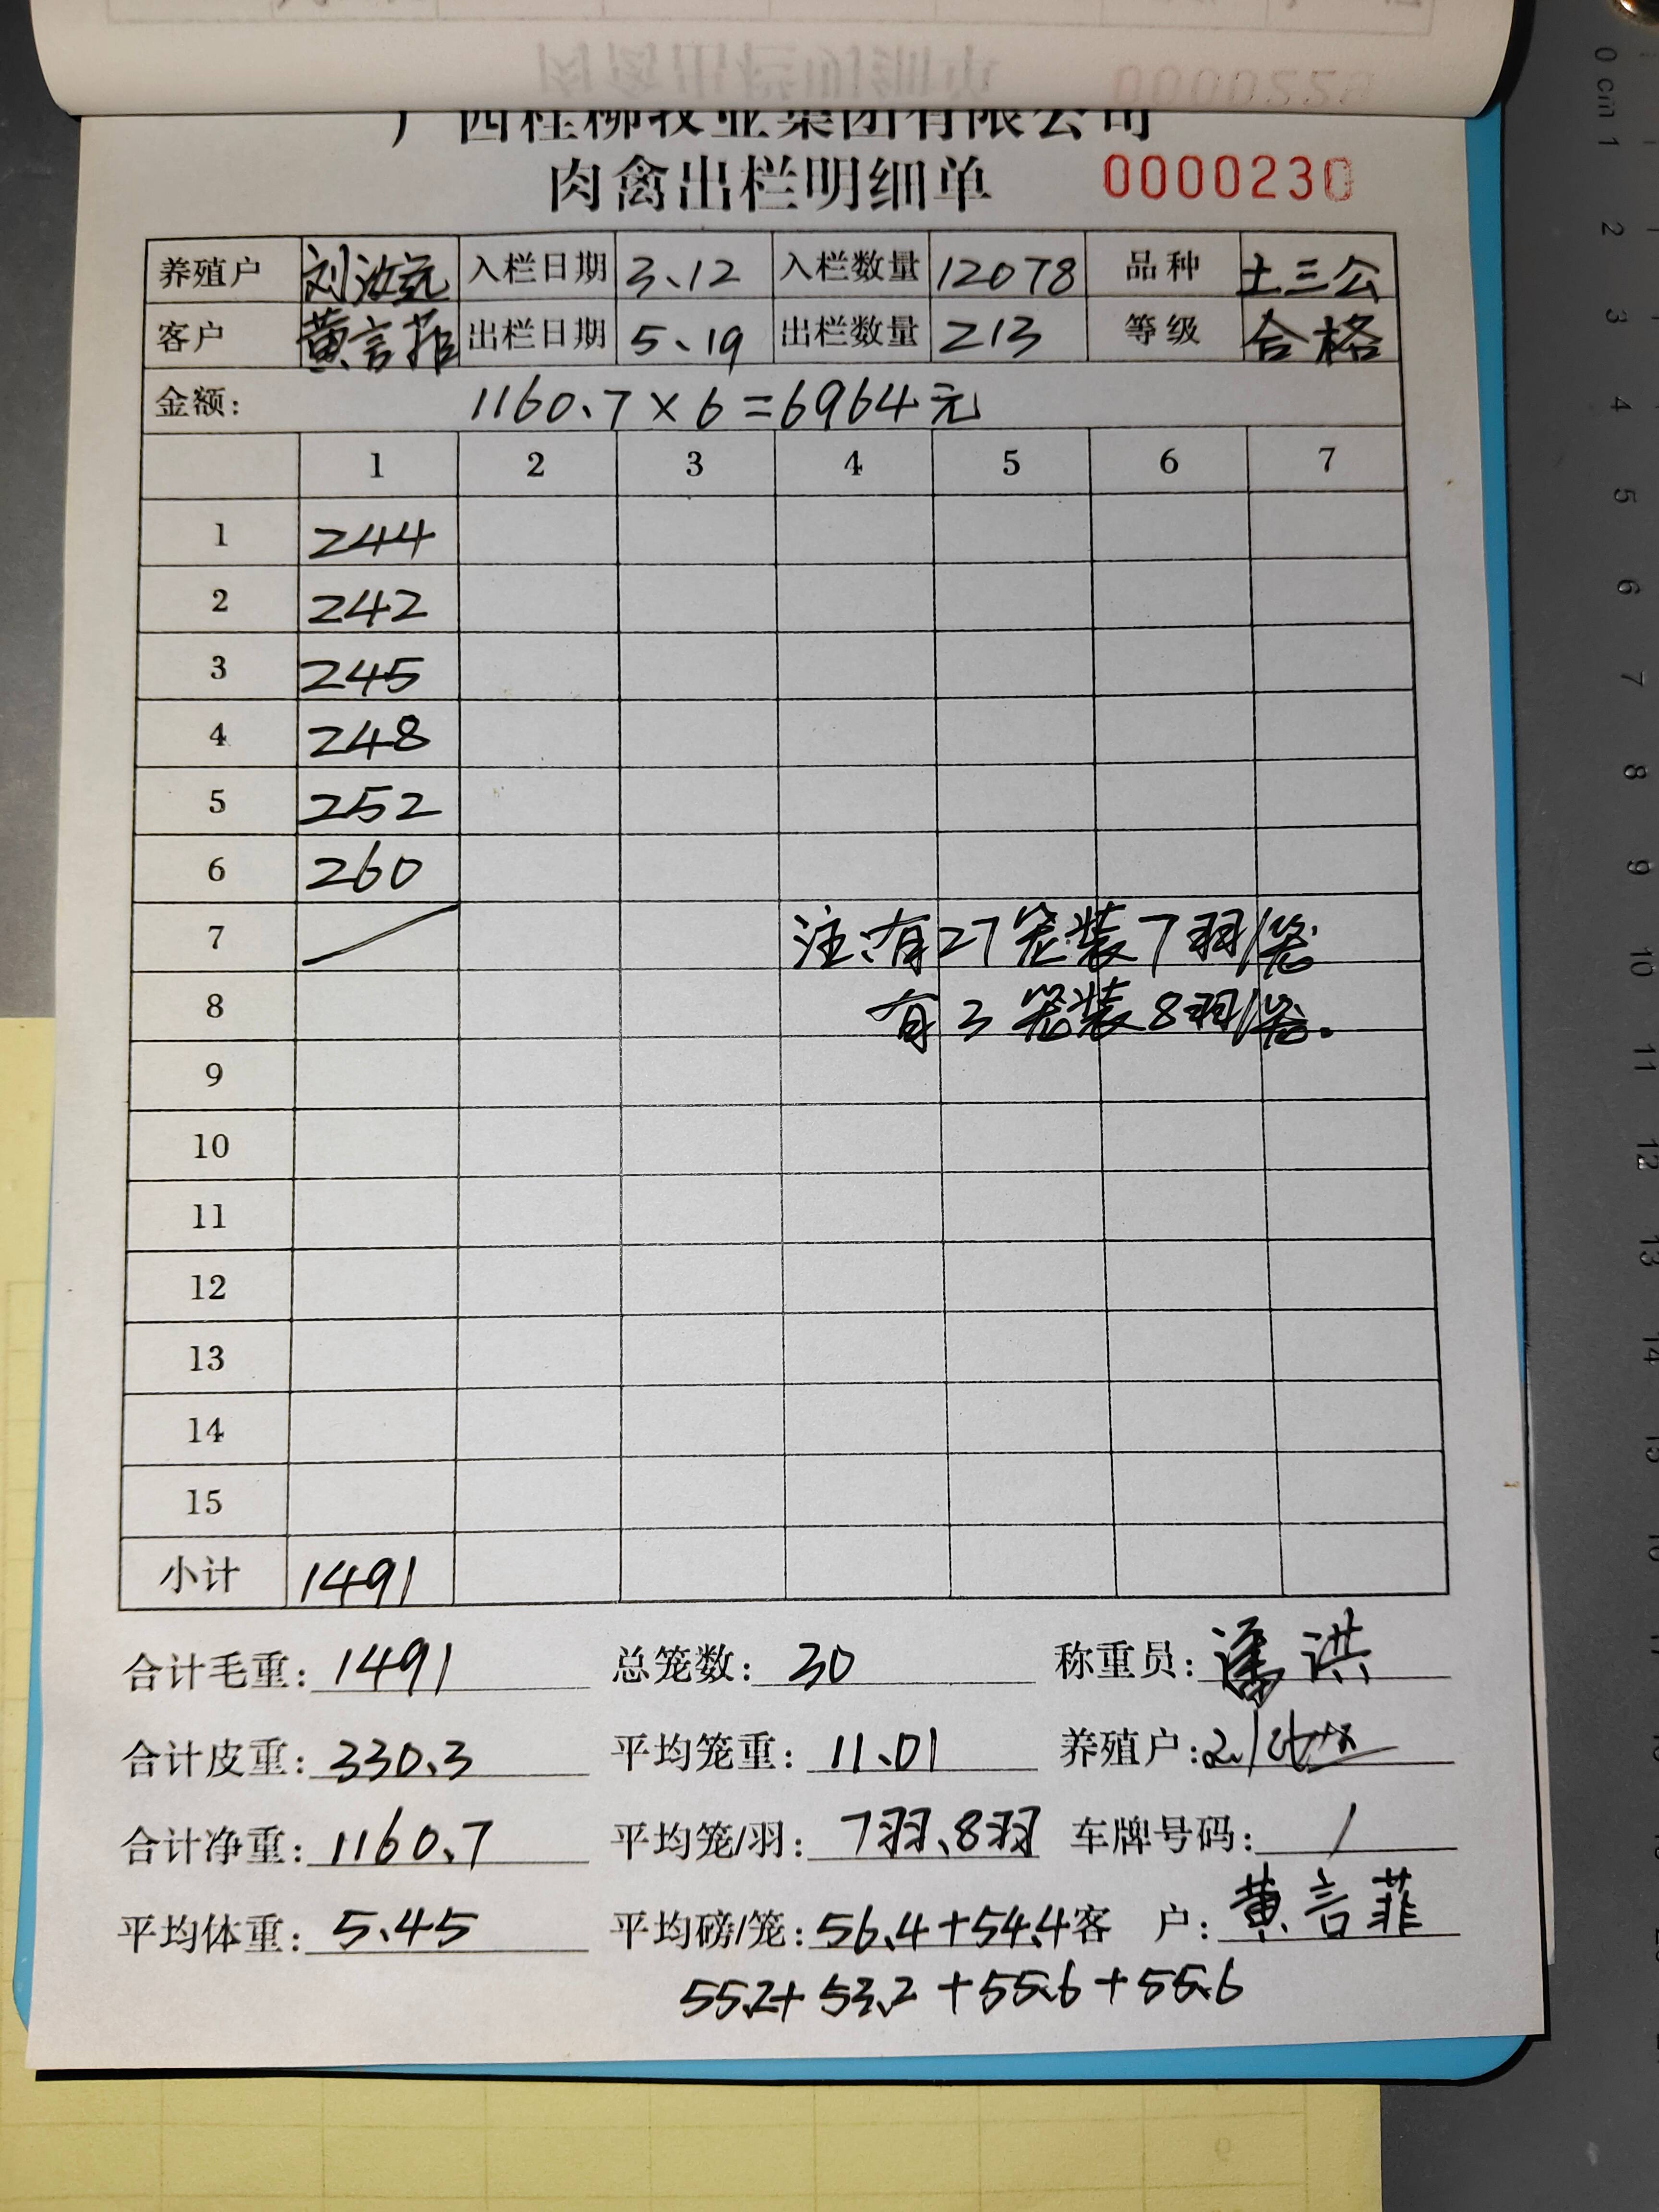 广西桂柳牧业集团有限公司
肉禽出栏明细单 0000230
养殖户 刘汝 入栏日期 3、12 入栏数量 12078 品种 土三公
客户 黄言菲 出栏日期 5、19 出栏数量 213 等级 合格
金额: 1160、7×6=6964元
1 2 3 4 5 6 7
1 244
2 242
3 245
4 248
5 252
6 260
7 注:有27笼装7羽/笼
8 有3笼装8羽/笼.
9
10
11
12
13
14
15
小计 1491
合计毛重: 1491 总笼数: 30 称重员: 潘洪
合计皮重: 330、3 平均笼重: 11、01 养殖户:
合计净重: 1160、7 平均笼/羽: 7羽、8羽 车牌号码: /
平均体重: 5、45 平均磅/笼: 56、4+54、4 客 户: 黄言菲
55、2+53、2+55、6+55、6
0 cm 1
2
3
4
5
6
7
8
9
10
11
12
13
14